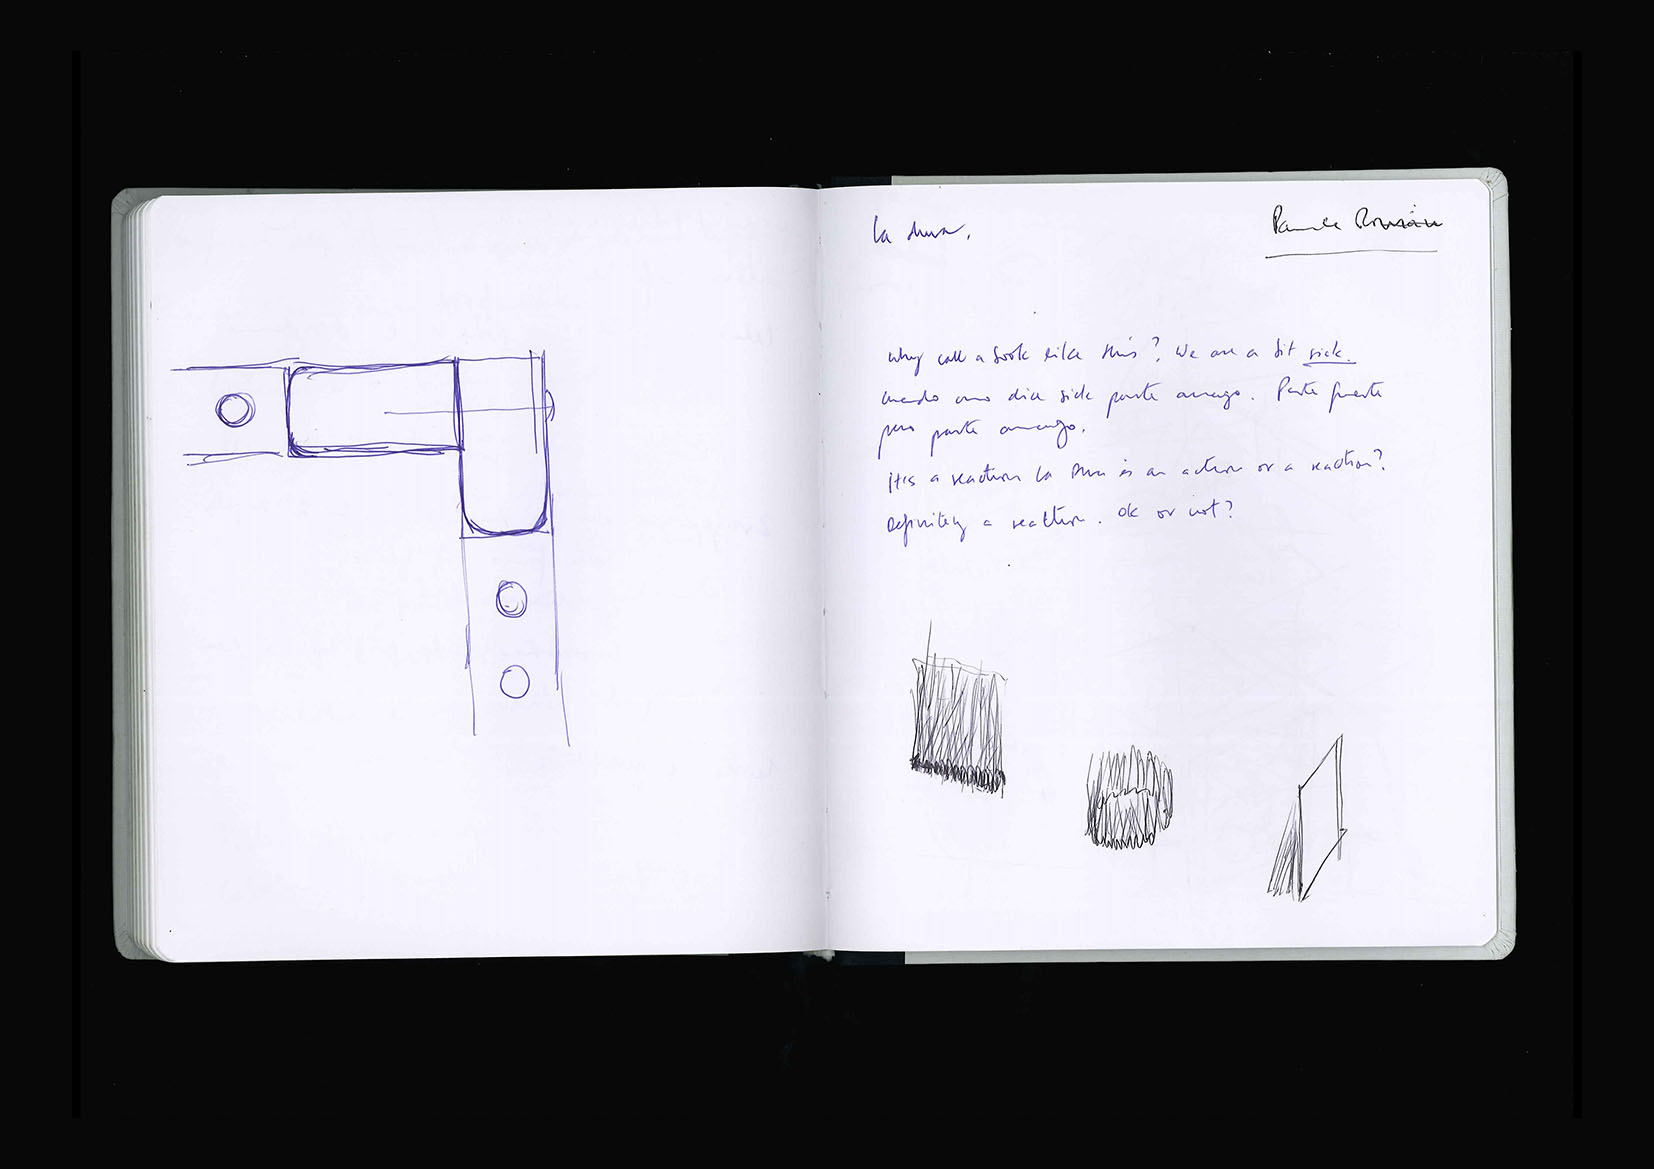 La
why call a book like this? We are a bit sick.
cuando uno dice sick parte amargo. Parte fuerte
pero parte amargo.
It's a reaction La is an action or a reaction?
Definitely a reaction. Ok or not?